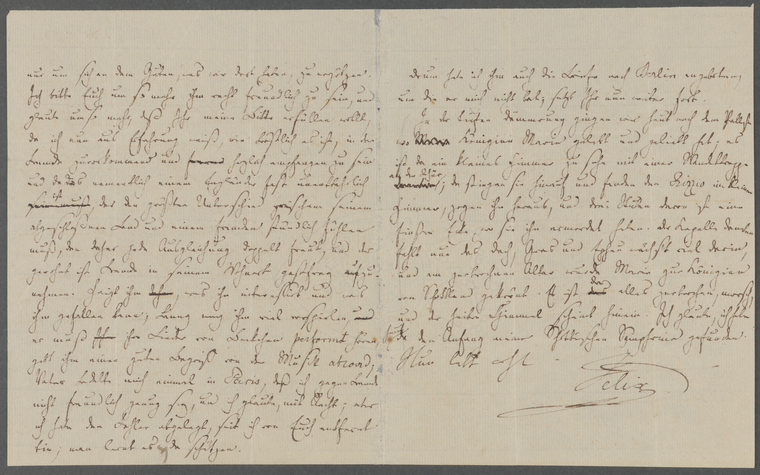 nur um sich an dem Guten, was wir dort haben, zu ergötzen.
Ich bitte Euch um so mehr ihm recht freundlich zu sein, und
glaube um so mehr, daß Ihr meine Bitte erfüllen wollt,
da ich nun aus Erfahrung weiß, wie köstlich es ist, in der
Fremde zuvorkommend und herzlich empfangen zu sein
und da das namentlich einem Engländer fast unentbehrlich
ist der den größten Unterschied zwischen seinem
abgeschlossenen Land und einem fremden freundlich fühlen
muß, den daher jede Ausgleichung doppelt freut, und der
gewohnt ist Fremde in seinem Wohnort gastfrey aufzu-
nehmen. Zeigt ihm was ihn interessirt und was
ihm gefallen kann; Fanny mag ihm viel vorspielen und
er muß ihre Lieder von Beckchen performt hören
gebt ihm einen guten Begriff von der Musik abroad;
Vater tadelte mich einmal in Paris, daß ich gegen Fremde
nicht freundlich genug sey, und ich glaube, mit Recht; aber
ich habe den Fehler abgelegt, seit ich von Euch entfernt
bin; man lernt es da schätzen.
drum habe ich ihm auch die Briefe nach Berlin angeboten,
um die er mich nicht bat; setzt Ihr nun weiter fort.
In der tiefen Dämmerung gingen wir heut nach dem Pallaste
wo Königinn Maria gelebt und geliebt hat; es
ist da ein kleines Zimmer zu sehn mit einer Wendeltreppe
an der Thür; da stiegen sie hinauf und fanden den Rizzio im kleinen
Zimmer, zogen ihn heraus, und drei Stuben davon ist eine
finstre Ecke, wo sie ihn ermordet haben. der Kapelle daneben
fehlt nun das Dach, Gras und Epheu wächst viel darin,
und am zerbrochenen Altar wurde Maria zur Königinn
von Schottland gekrönt. Es ist da alles zerbrochen, morsch,
und der heitre Himmel scheint hinein. Ich glaube, ich habe
heut da den Anfang meiner Schottischen Symphonie gefunden.
Nun lebt wohl
Felix